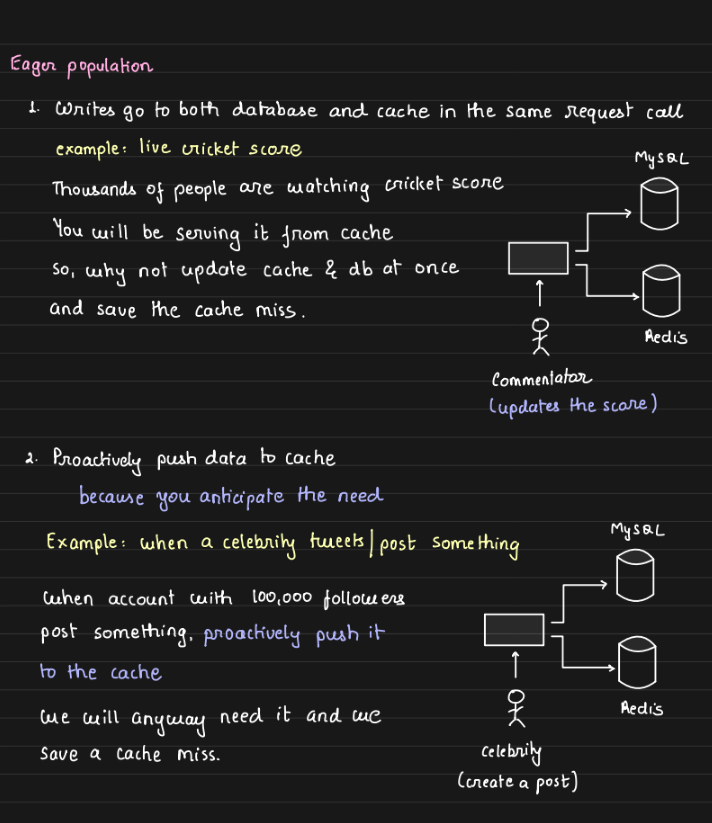 Eager population
1. Writes go to both database and cache in the same request call
example: live cricket score
Thousands of people are watching cricket score
You will be serving it from cache
so, why not update cache & db at once
and save the cache miss.
MySQL
Redis
Commentator
(updates the score)
2. Proactively push data to cache
because you anticipate the need
Example: when a celebrity tweets | post something
when account with 100,000 followers
post something, proactively push it
to the cache
we will anyway need it and we
save a cache miss.
MySQL
Redis
celebrity
(create a post)